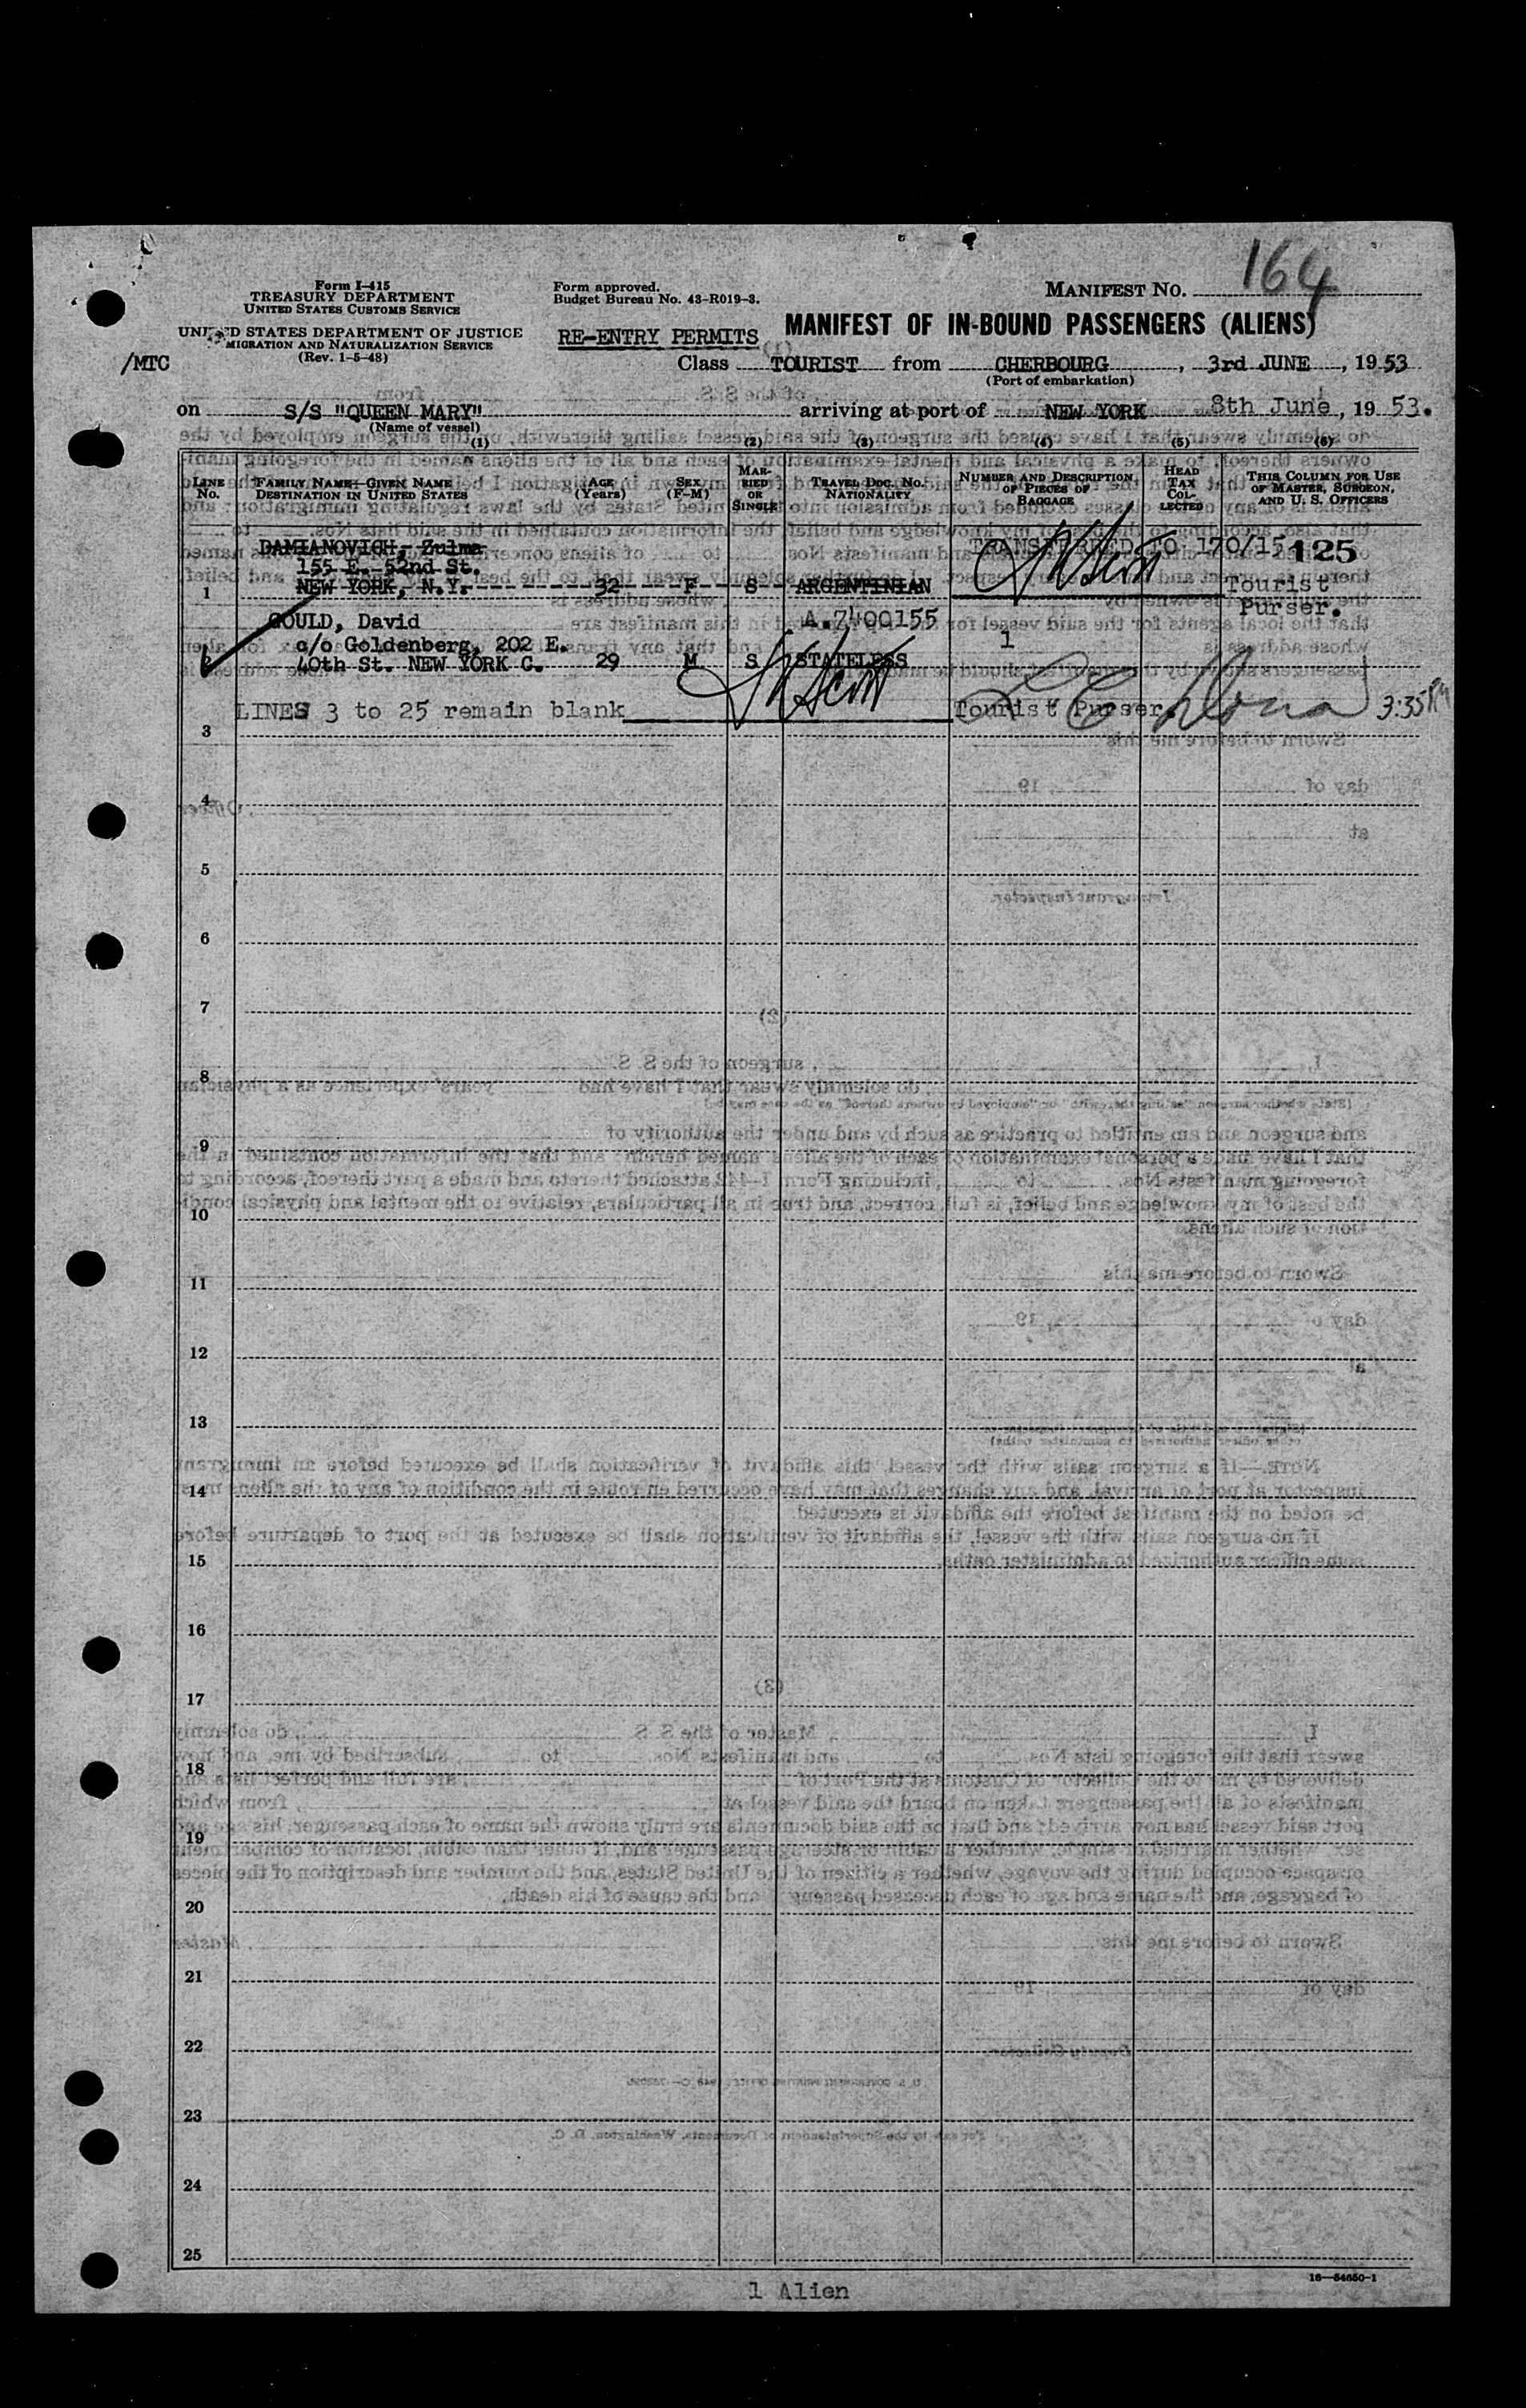 164
Form I-415
TREASURY DEPARTMENT
UNITED STATES CUSTOMS SERVICE
UNITED STATES DEPARTMENT OF JUSTICE
IMMIGRATION AND NATURALIZATION SERVICE
(Rev. 1-5-48)
/MTC
Form approved.
Budget Bureau No. 43-R019-3.
MANIFEST No.
RE-ENTRY PERMITS
MANIFEST OF IN-BOUND PASSENGERS (ALIENS)
Class TOURIST from CHERBOURG, 3rd JUNE, 1953
(Port of embarkation)
on S/S "QUEEN MARY" arriving at port of NEW YORK 8th June, 1953.
(Name of vessel)
(1) (2) (3) (4) (5) (6)
LINE No. FAMILY NAME—GIVEN NAME DESTINATION IN UNITED STATES AGE (Years) SEX (F-M) MARRIED OR SINGLE TRAVEL DOC. NO. NATIONALITY NUMBER AND DESCRIPTION OF PIECES OF BAGGAGE HEAD TAX COLLECTED THIS COLUMN FOR USE OF MASTER, SURGEON, AND U. S. OFFICERS
DAMIANOVICH, Zulma TRANSFERRED TO 170/15 125
155 E. 52nd St.
1 NEW YORK, N.Y. 32 F S ARGENTINIAN Tourist
Purser.
GOULD, David A.7400155
c/o Goldenberg, 202 E. 1
2 40th St. NEW YORK C. 29 M S STATELESS
LINES 3 to 25 remain blank Tourist Purser. 3:35 PM
3
4
5
6
7
8
9
10
11
12
13
14
15
16
17
18
19
20
21
22
23
24
25
16—54650-1
1 Alien